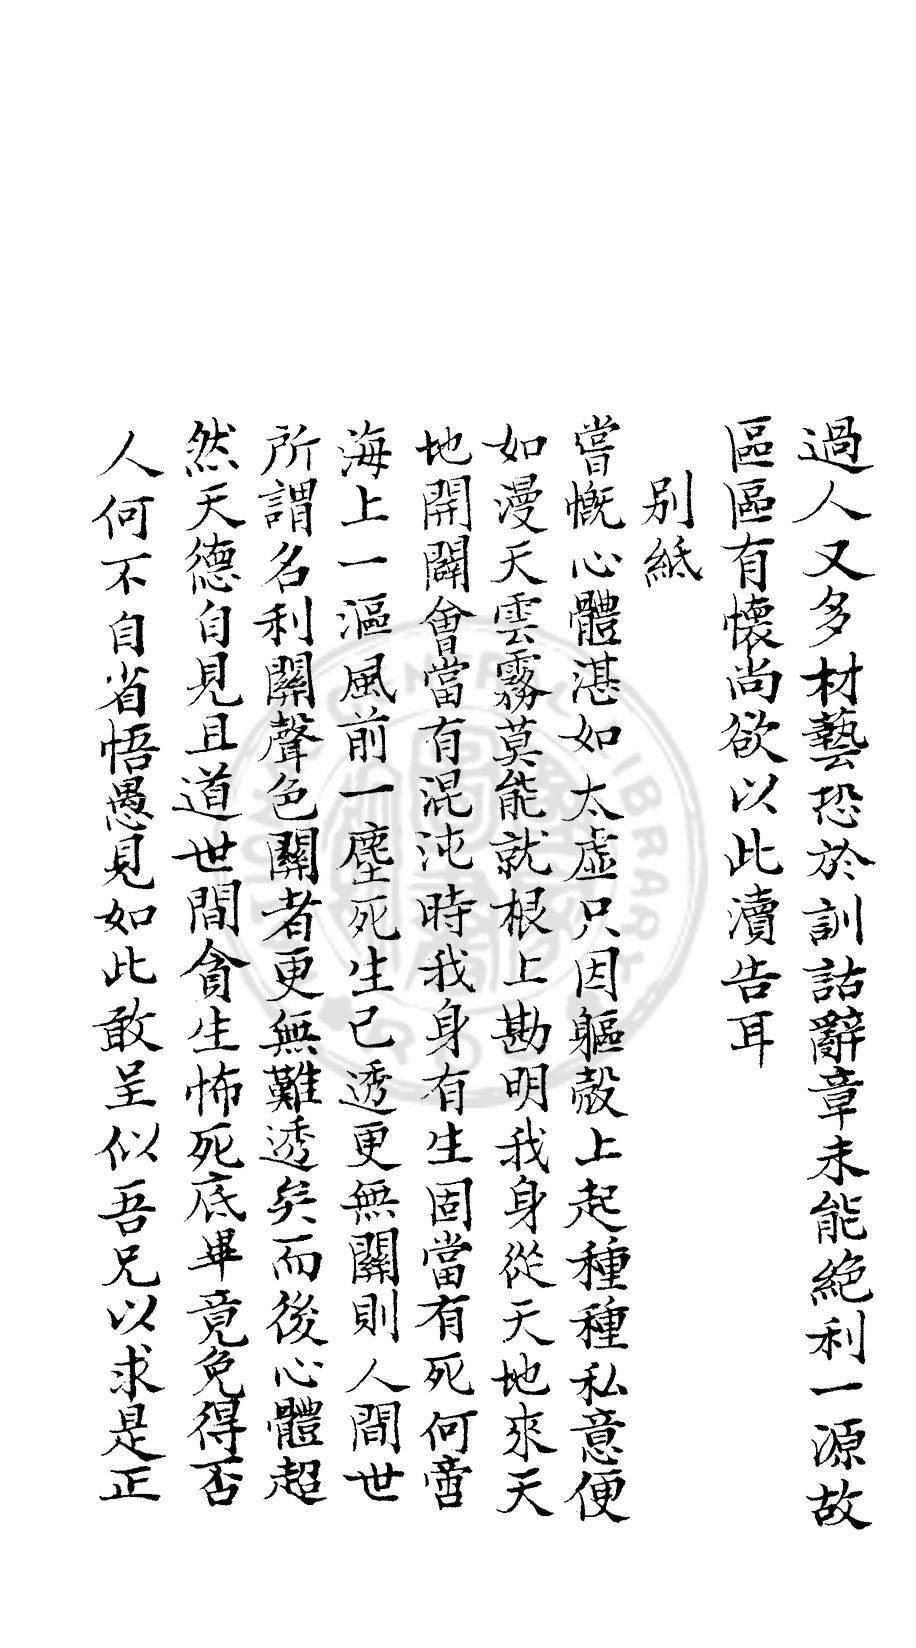 過人又多材藝恐於訓詁辭章未能絶利一源故
區區有懷尚欲以此瀆告耳
别紙
嘗慨心體湛如太虛只因軀殼上起種種私意便
如漫天雲霧莫能就根上勘明我身從天地來天
地開闢會當有混沌時我身有生固當有死何啻
海上一漚風前一塵死生已透更無關則人間世
所謂名利關聲色關者更無難透矣而後心體超
然天德自見且道世間貪生怖死底畢竟免得否
人何不自省悟愚見如此敢呈似吾兄以求是正